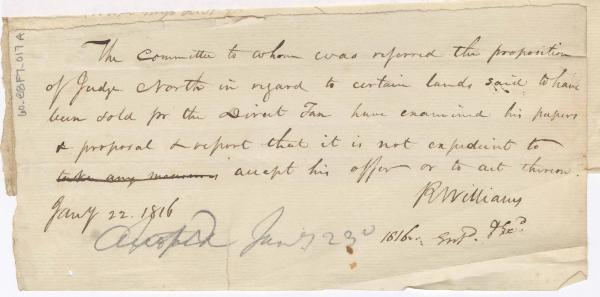 The Committee to whom was referred the proposition
of Judge North in regard to certain lands said to have
been sold for the Direct Tax have examined his papers
& proposal & report that it is not expedient to
take any measures accept his offer or to act thereon.
R Williams
Jany 22. 1816
Accepted Jany 23d 1816. Engd. & Recd
60.88F7-017A